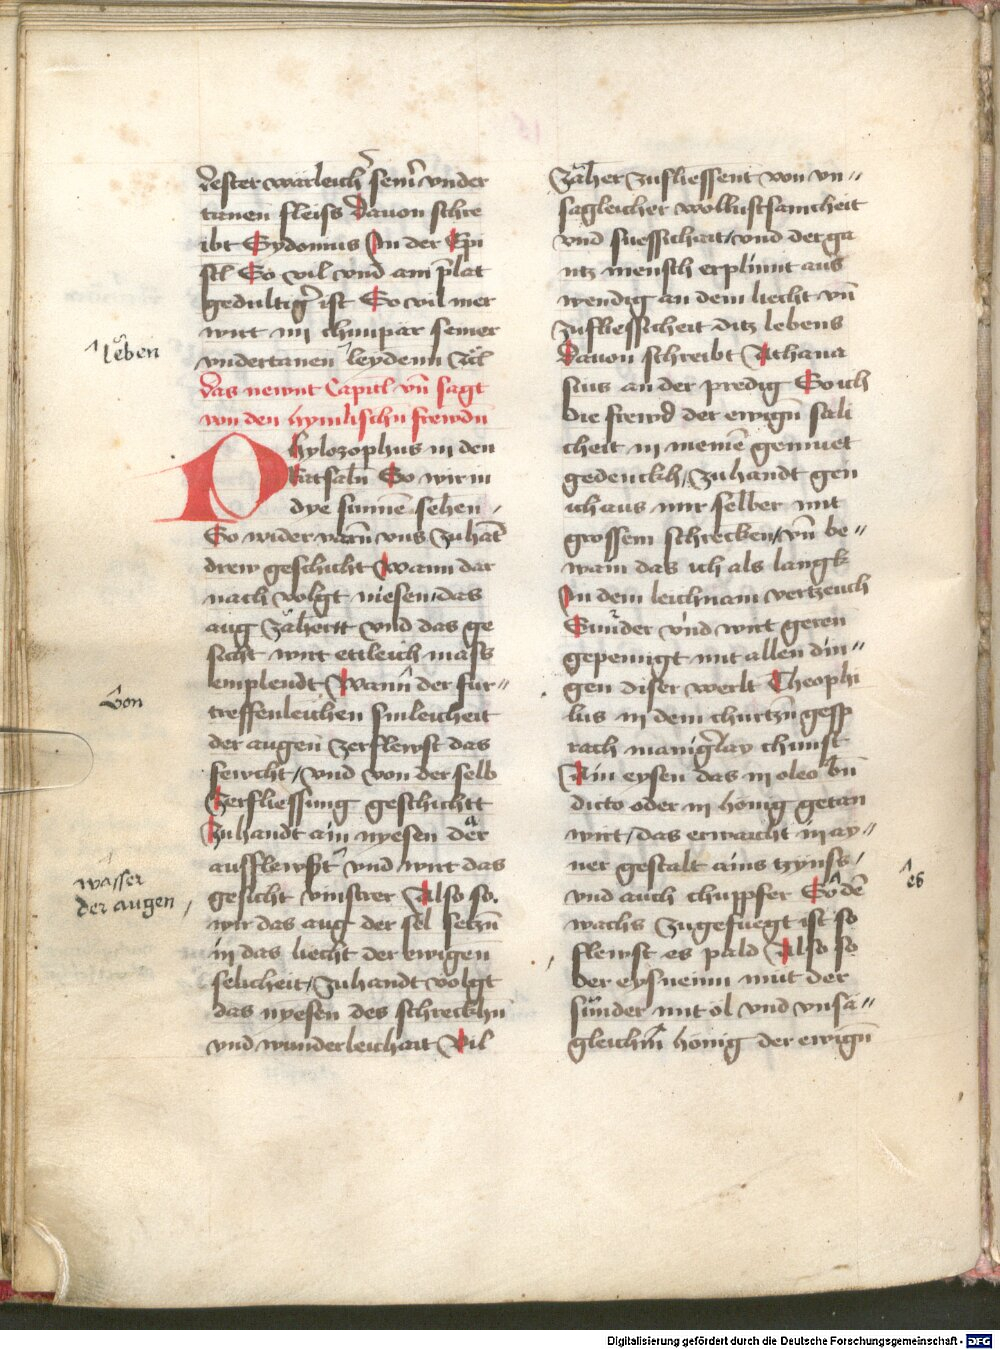 vester warleich seiner vnder
tanen fleiss Dauon schre
ibt Sydonius In der Epi
stl So vil vnd am prelat
gedultiger ist So vil mer
wirt im chunpar seiner
vndertanen leydenn Zal
Das newnt Capitl vnd sagt
von den hymlischn frewdn
Phylozophus in den
Ratsaln So wir in
dye sunnē sehen
So widervarn vns zuhāt
drew geschicht Wann dar
nach volgt niesen / das
aug zähertt vnd das ge
sicht wirt ettleich mass
lemplendt Wann der fur=
treffenleichen sinleicheit
der augen zerflewst das
fewcht / vnd von der selb
Zerfliessung geschichtt
Zuhandt ain nyesen der
ausflewst vnd wirt das
gesicht vinstrer Also so
wir das aug der sel setzn
in das liecht der ewigen
selicheit / zuhandt volgt
das nyesen des schreckhn
vnd wunderleichait Vil
leben
von
wasser
der augen
Zäher zufliessent von vn=
sagleicher wollustsamcheit
vnd suessichait / vnd der ga
ntz mensch erplinnt aus
wendig an dem liecht vn̄
zufliessicheit ditz lebens
Dauon schreibt Athana
sius an der predig So ich
die frewd der ewign̄ sali
cheit in meinē gemuet
gedenckh / zuhandt gen
ich aus mir selber mit
grossem schrecken / vn̄ be=
wain das ich als langk
In dem leichnam vertzeuch
Sunder vnd wirt geren
gepeinigt mit allen din=
gen diser werlt Theophi
lus in dem churtzn̄ gesp
rach manigerlay chunst
Ain eysen das in oleo bn̄
dicto oder in honig getan
wirt / das erwaicht in ay=
ner gestalt ains tzynss /
vnd auch chuppfer So dē
wachs zugefuegt ist so
flewst es pald Also so
der eysneinn mut der
sunder mit ol vnd vnsa=
gleichm̄ honig der ewign̄
es
Digitalisierung gefördert durch die Deutsche Forschungsgemeinschaft - DFG